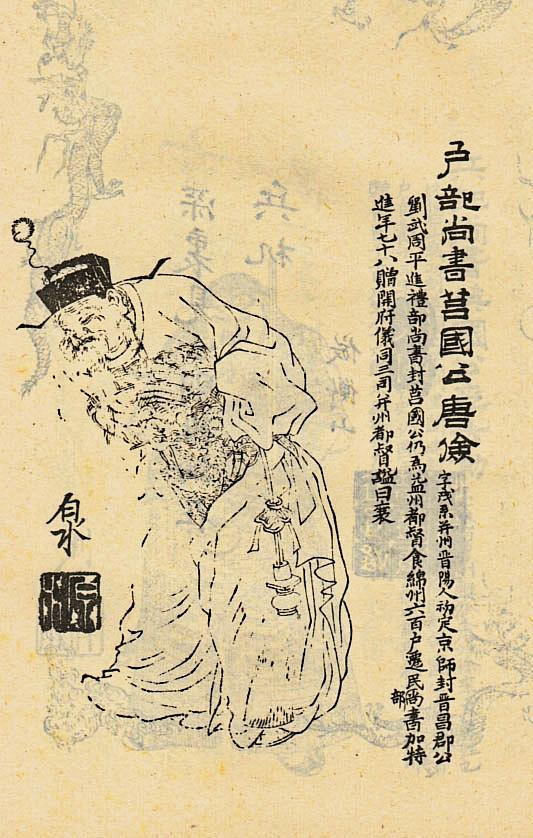 戶部尚書莒國公唐儉
字茂系并州晋陽人初定京師封晋昌郡公
劉武周平進禮部尚書封莒國公仍為益州都督食綿州六百戶遷民部尚書加特
進年七十八贈開府儀同三司并州都督諡曰襄
白水